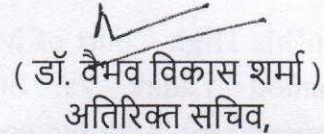 ( डॉ. वैभव विकास शर्मा )
अतिरिक्त सचिव,